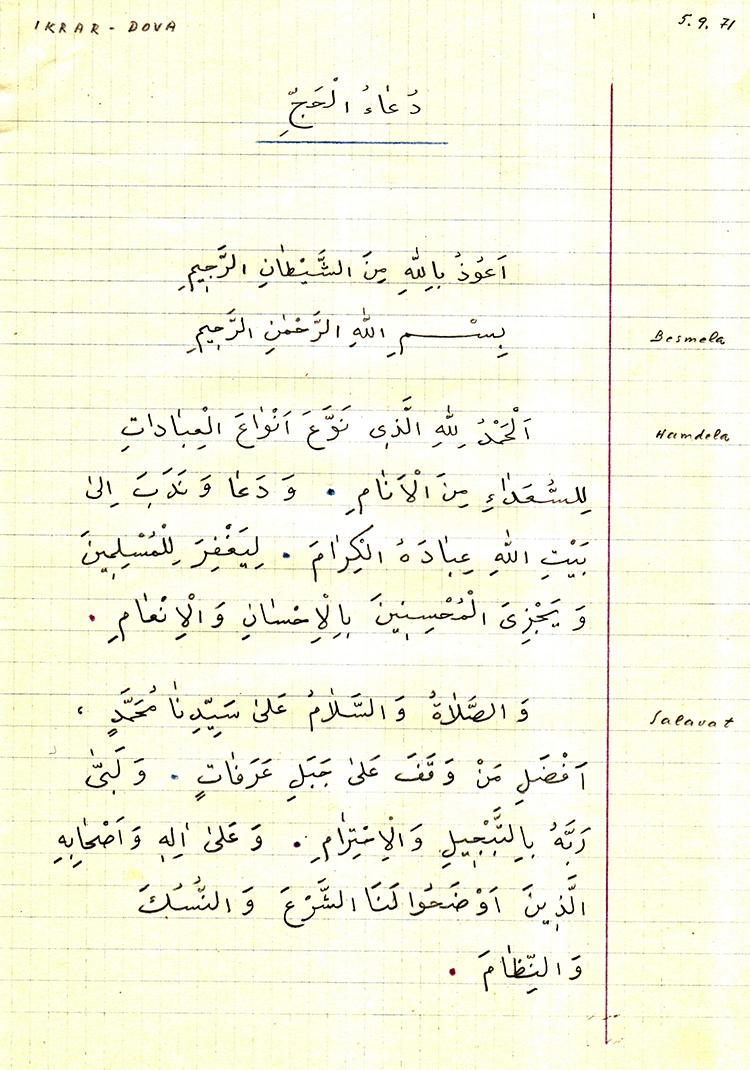 IKRAR - DOVA
5.9.71
دُعَاءُ الْحَجِّ
اَعُوذُ بِاللّٰهِ مِنَ الشَّيْطَانِ الرَّجِيمِ
بِسْمِ اللّٰهِ الرَّحْمٰنِ الرَّحِيمِ
Besmela
اَلْحَمْدُ لِلّٰهِ الَّذِى نَوَّعَ اَنْوَاعَ الْعِبَادَاتِ
Hamdela
لِلسُّعَدَاءِ مِنَ الْاَنَامِ . وَ دَعَا وَ نَدَبَ اِلىٰ
بَيْتِ اللّٰهِ عِبَادَهُ الْكِرَامَ . لِيَغْفِرَ لِلْمُسْلِمِينَ
وَ يَجْزِىَ الْمُحْسِنِينَ بِالْاِحْسَانِ وَ الْاِنْعَامِ .
وَ الصَّلَاةُ وَ السَّلَامُ عَلىٰ سَيِّدِنَا مُحَمَّدٍ ،
Salavat
اَفْضَلِ مَنْ وَقَفَ عَلىٰ جَبَلِ عَرَفَاتٍ . وَ لَبّىٰ
رَبَّهُ بِالتَّبْجِيلِ وَ الْاِحْتِرَامِ . وَ عَلىٰ اٰلِهِ وَ اَصْحَابِهِ
الَّذِينَ اَوْضَحُوا لَنَا الشَّرْعَ وَ النُّسُكَ
وَ النِّظَامَ .